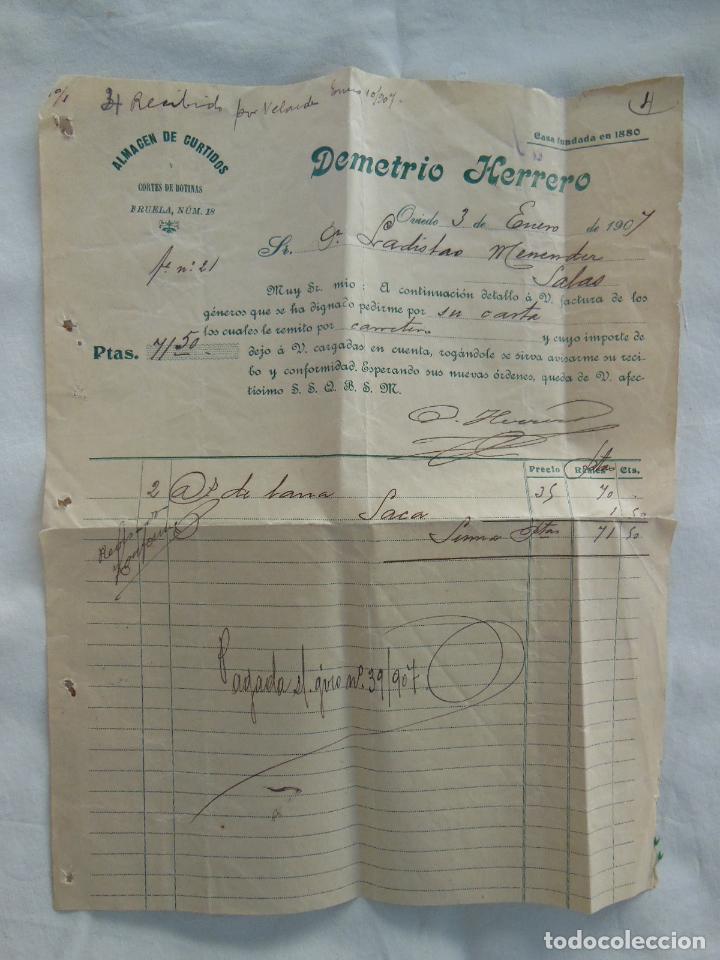 10/1 Recibido por Velarde Enero 10/907.
4
Casa fundada en 1880
ALMACEN DE CURTIDOS
Y
CORTES DE BOTINAS
FRUELA, NÚM. 18
Demetrio Herrero
Oviedo 3 de Enero de 1907
Sr. Dn. Ladislao Menendez
Salas
fª nº 21
Muy Sr. mio: A continuación detallo á V. factura de los
géneros que se ha dignado pedirme por su carta
los cuales le remito por carretero y cuyo importe de
Ptas. 71 50
dejo á V. cargadas en cuenta, rogándole se sirva avisarme su reci-
bo y conformidad. Esperando sus nuevas órdenes, queda de V. afec-
tísimo S. S. Q. B. S. M.
D. Herrero
Precio Reales Ptas Cts.
2 @s de lana 35 70 -
Saca 1 50
Suman Ptas 71 50
Pagada s/ giro nº 39/907.
todocoleccion
todocoleccion.net